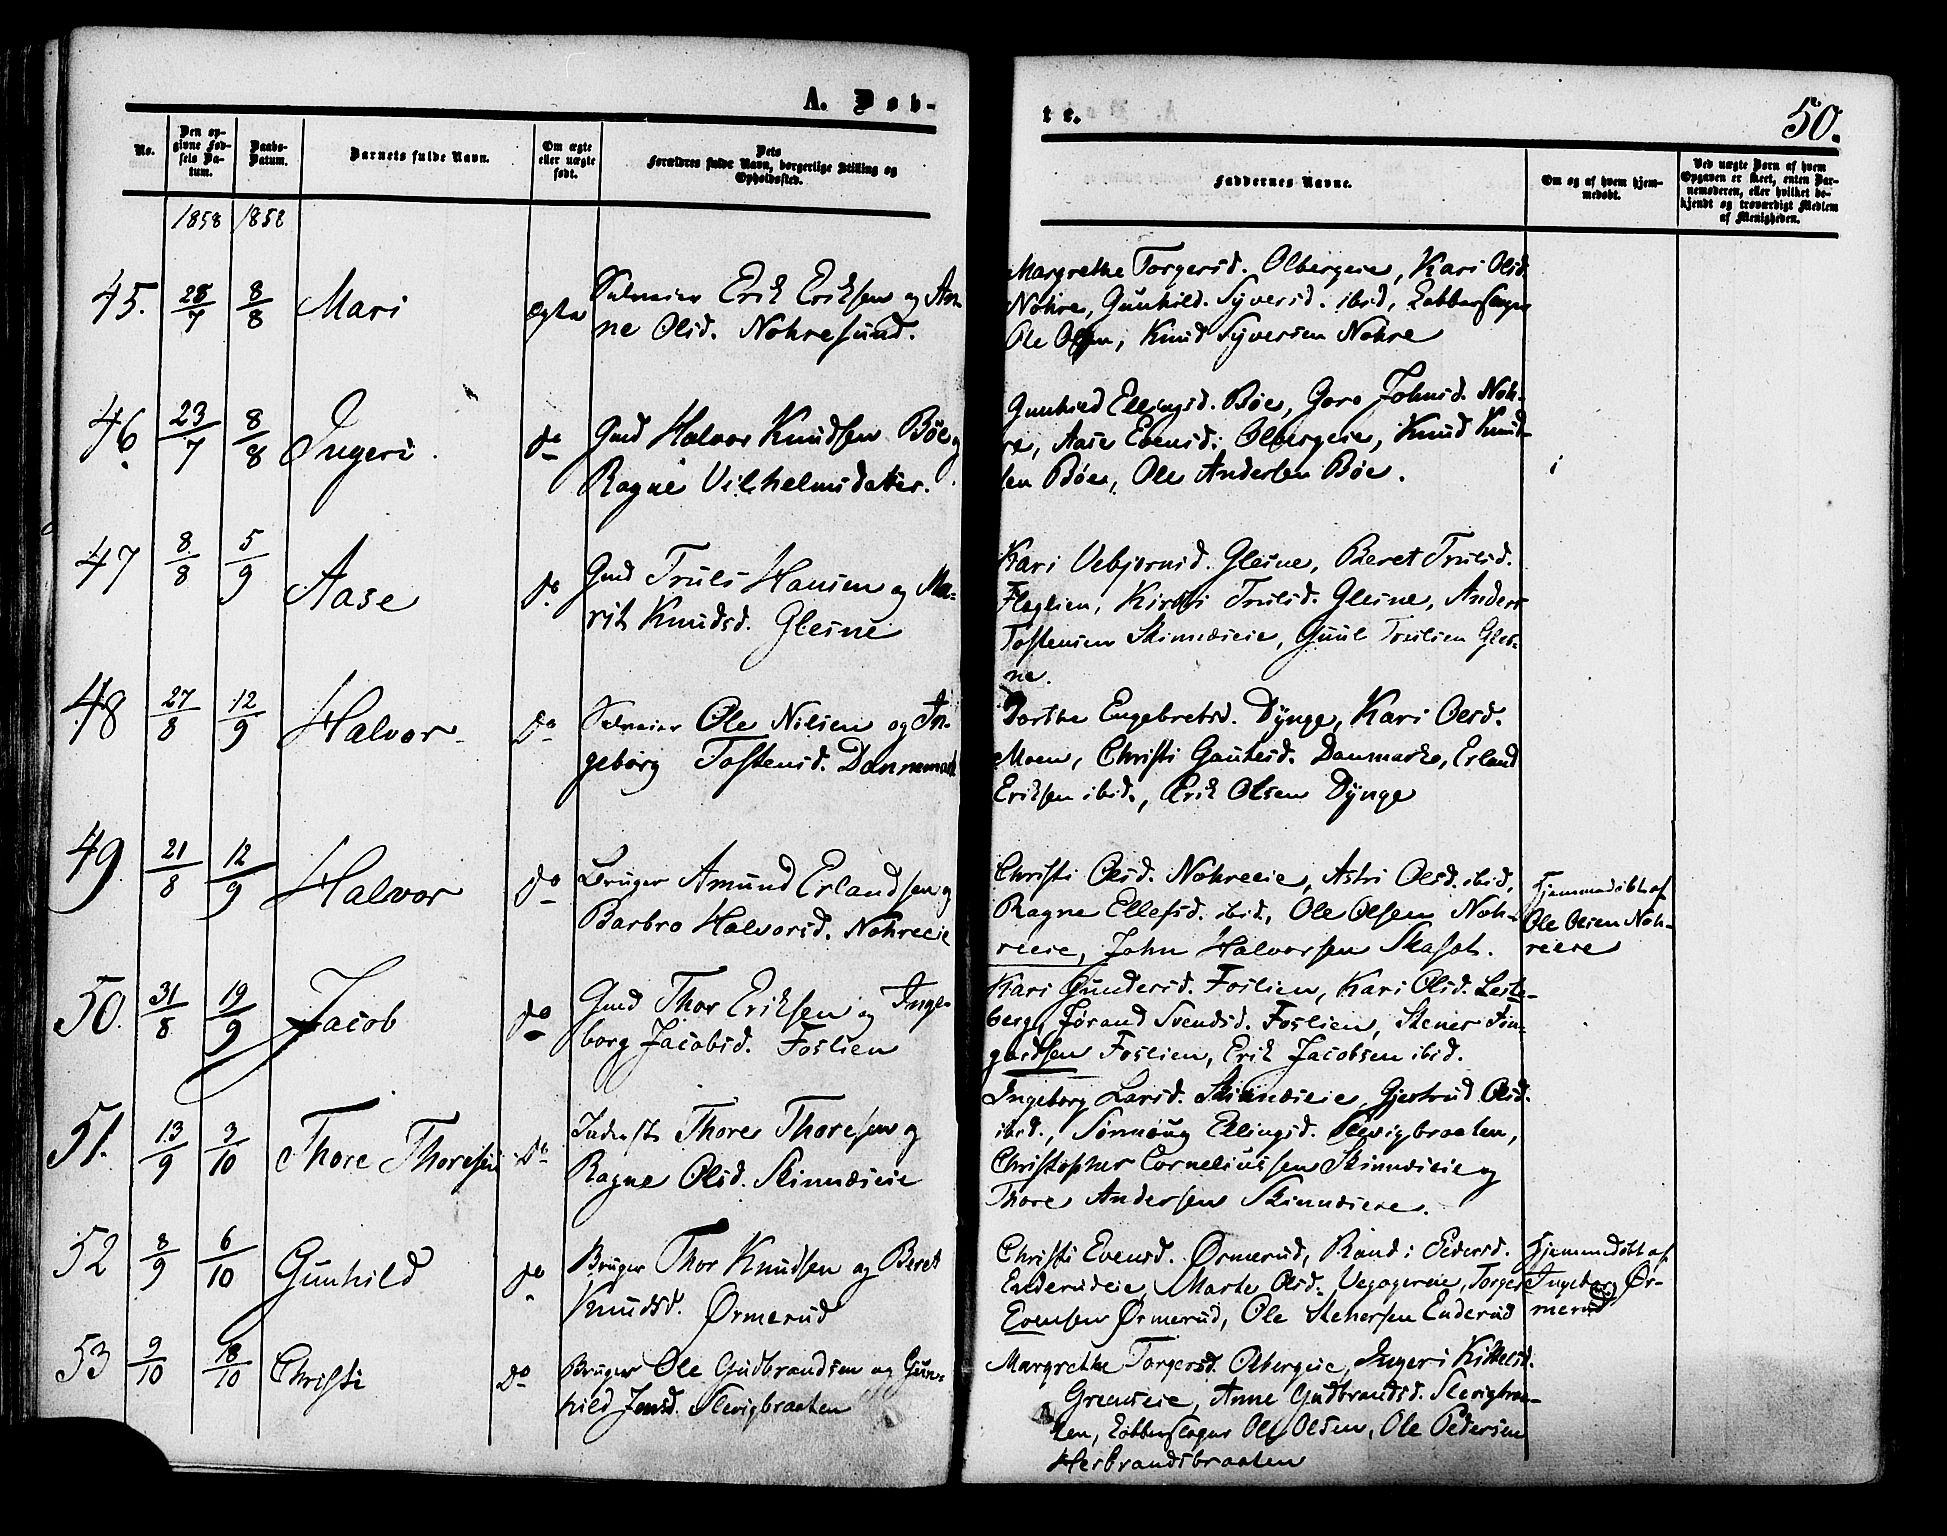 A. Døb-
te.
50.
No.
Den op-
givne Fød-
sels Da-
tum.
Daabs-
Datum.
Barnets fulde Navn.
Om ægte
eller uægte
født.
Dets
Forældres fulde Navn, borgerlige Stilling og
Opholdssted.
Faddernes Navne.
Om og af hvem hjem-
medøbt.
Ved uægte Børn af hvem
Opgaven er skeet, enten Bar-
nemoderen, eller hvilket be-
kjendt og troværdigt Medlem
af Menigheden.
1858 1858
45. 28/7 8/8 Mari ægte
Selveier Erik Eriksen og An-
ne Olsd. Nohresund.
Margrethe Torgersd. Olbergeie, Kari Olsd.
Nohre, Gunhild Syversd. ibid,
Ole Olsen, Knud Syversen Nohre
46. 23/7 8/8 Ingeri do
Gmd Halvor Knudsen Bøe og
Ragne Vilhelmsdatter.
Gunhild Ellingsd. Bøe, Goro Johnsd. Noh-
re, Aase Evensd. Olbergeie, Knud Knud-
sen Bøe, Ole Andersen Bøe.
47 8/8 5/9 Aase do
Gmd Truls Hansen og Ma-
rit Knudsd. Glesne
Kari Vebjørnsd. Glesne, Beret Trulsd.
Flaglien, Kirsti Trulsd. Glesne, Anders
Tostensen Skinnæseie, Guul Trulsen Gles-
ne.
48 27/8 12/9 Halvor do
Selveier Ole Nilsen og In-
geborg Tostensd. Dannemark
Dorthe Engebretsd. Dynge, Kari Olsd.
Moen, Christi Gautesd. Danmark, Erland
Eriksen ibid., Erik Olsen Dynge
49 21/8 12/9 Halvor do
Bruger Amund Erlandsen og
Barbro Halvorsd. Nohreeie
Christi Olsd. Nohreeie, Astri Olsd. ibid,
Ragne Ellefsd. ibid, Ole Olsen Noh-
reeie, John Halvorsen Skafot.
Hjemmedøbt af
Ole Olsen Noh-
reeie
50. 31/8 19/9 Jacob do
Gmd Thor Eriksen og Inge-
borg Jacobsd. Foslien
Kari Gundersd. Foslien, Kari Olsd. Leste-
berg, Jørand Svendsd. Foslien, Stener
Foslien, Erik Jacobsen ibid.
51. 13/9 3/10 Thore Thoresen do
Inderst Thore Thoresen og
Ragne Olsd. Skinnæseie
Ingeborg Larsd. Skinnæseie, Gjertrud Olsd.
ibid., Sønnøug Ellingsd. Slevigbraaten,
Christopher Corneliussen Skinnæseie og
Thore Andersen Skinnæseie.
52 8/9 6/10 Gunhild do
Bruger Thor Knudsen og Beret
Knudsd. Ørmerud
Christi Evensd. Ørmerud, Randi Pedersd.
Enderudeie, Marte Olsd. Torger
Evensen Ørmerud, Ole Stenersen Enderud
Hjemmedøbt af
Ingeborg Ør-
merud
53 9/10 18/10 Christi do
Bruger Ole Gudbrandsen og Gun-
hild Jensd. Slevigbraaten
Margrethe Torgersd. Olbergeie, Ingeri Kittelsd.
Grenseie, Anne Gudbrandsd. Slevigbraa-
ten, Ole Olsen, Ole Pedersen
Herbrandsbraaten